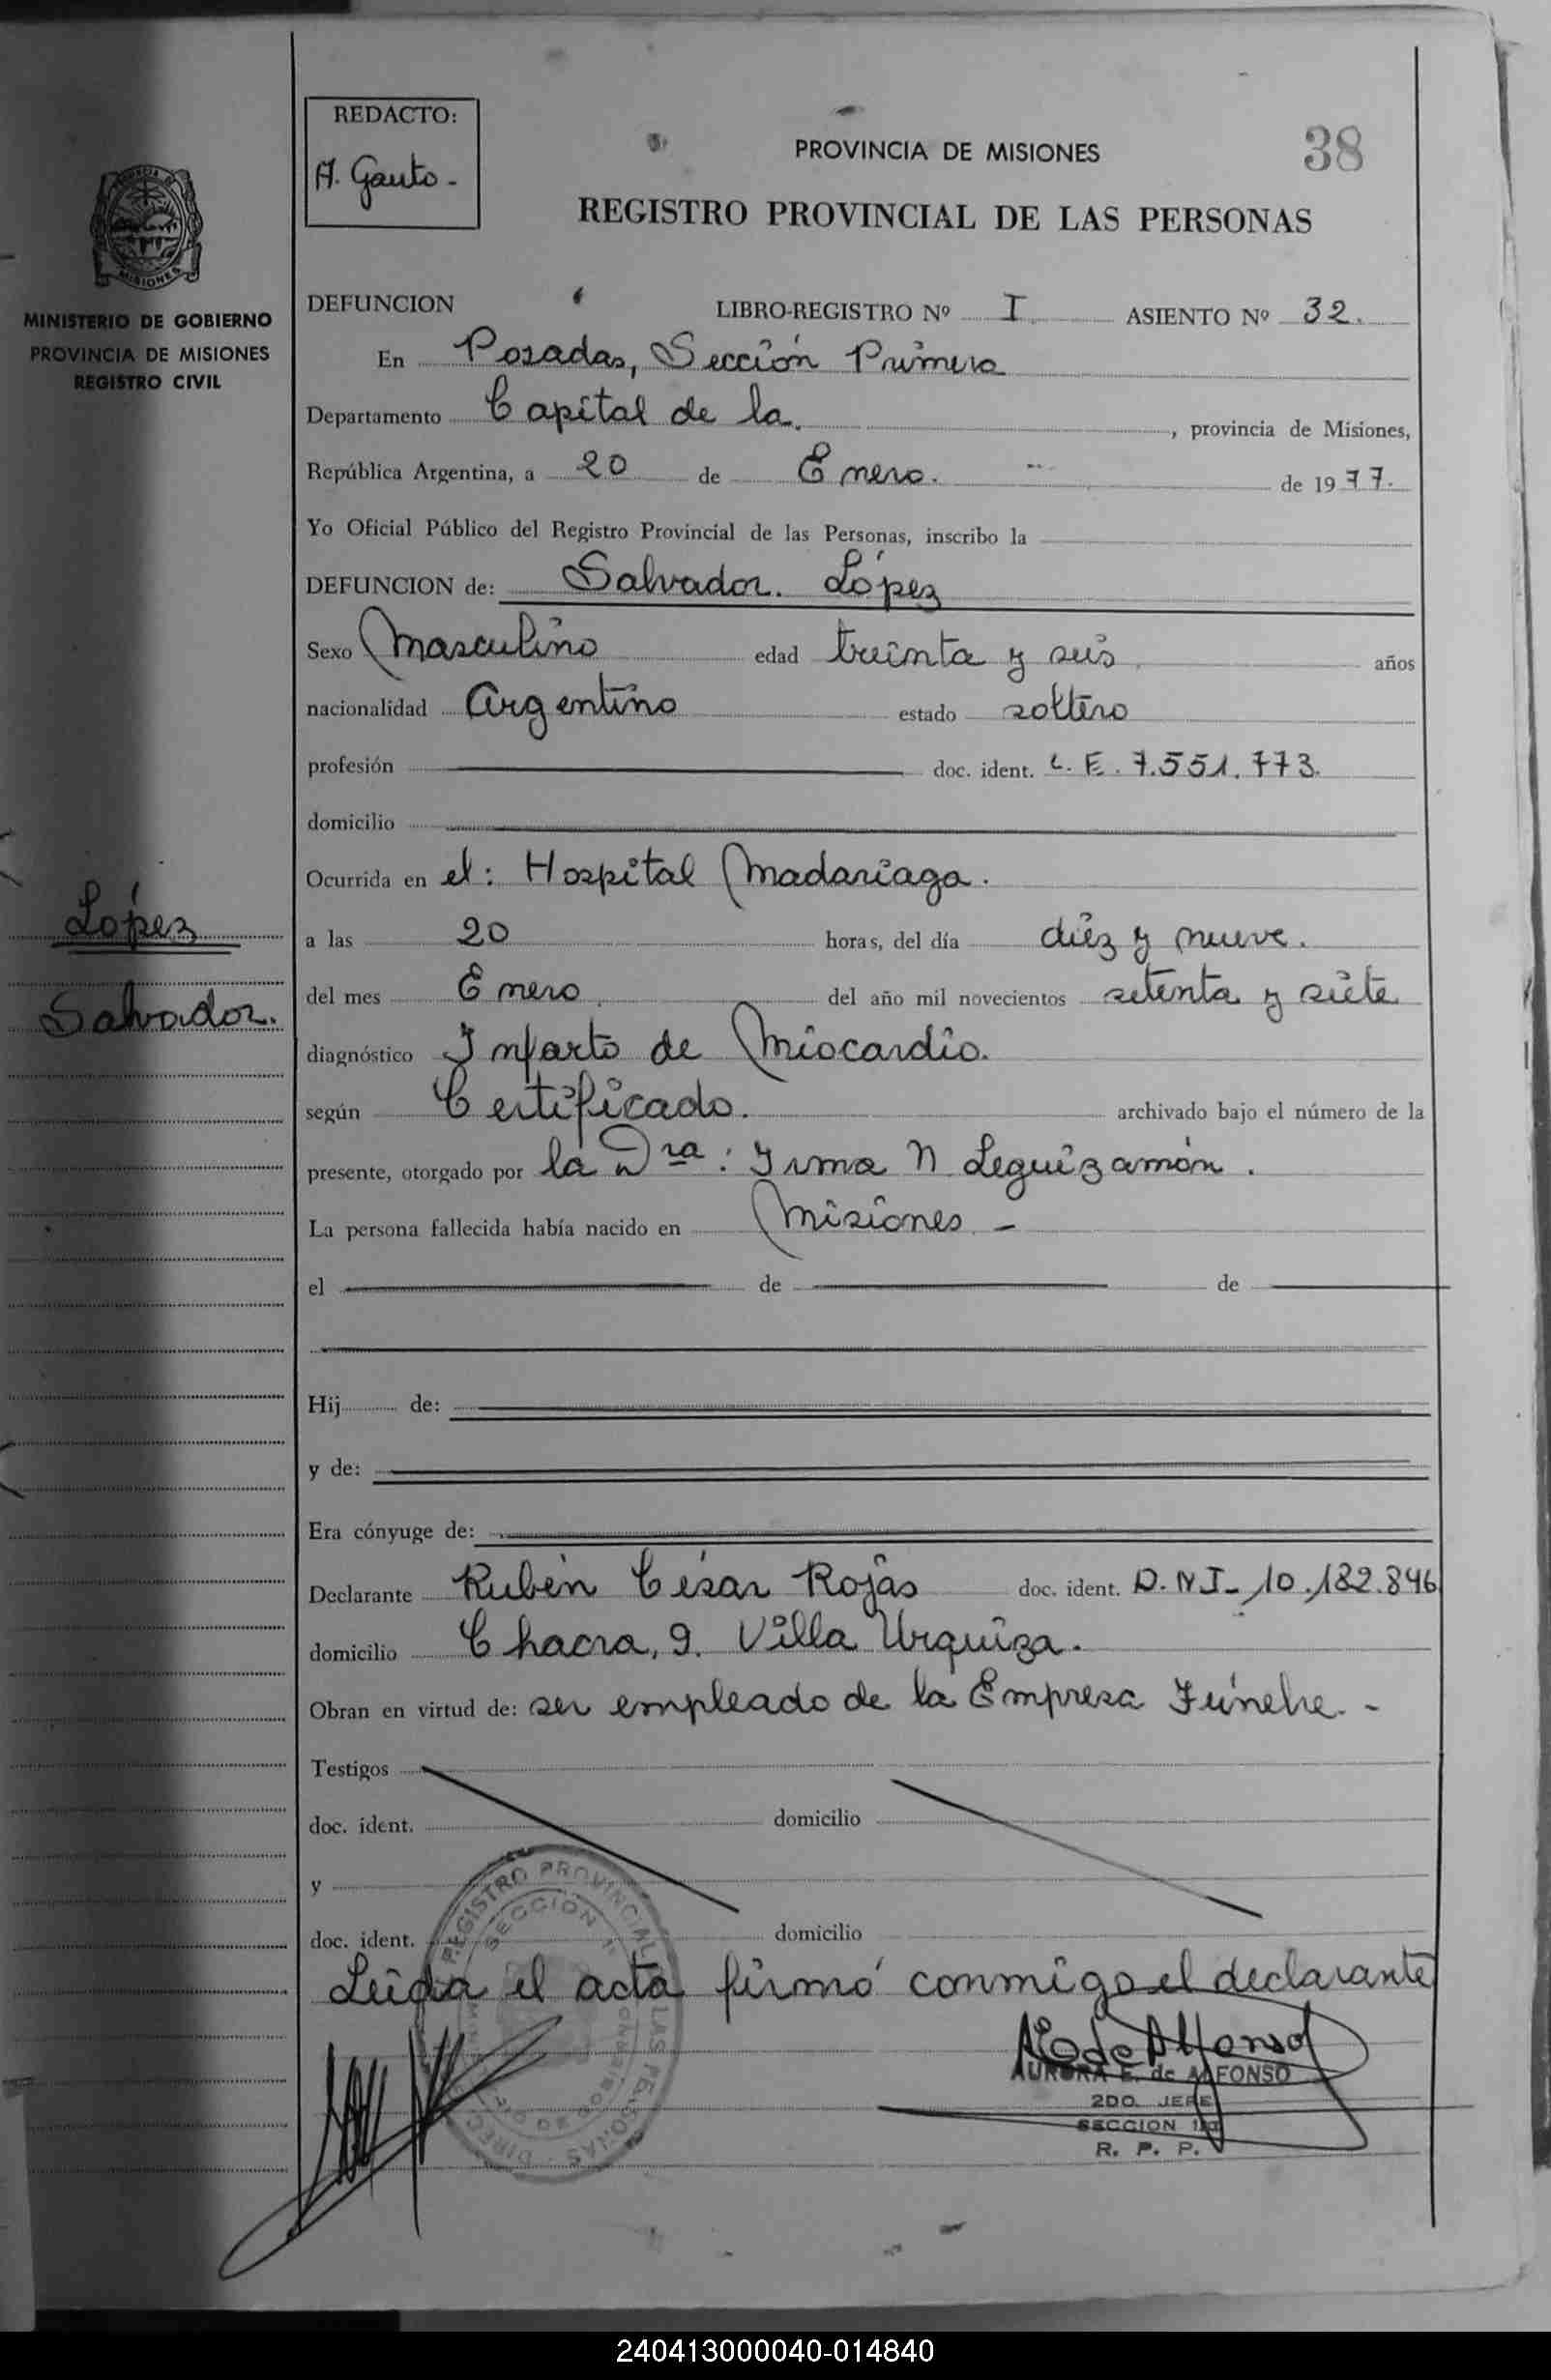 REDACTO:
A. Gauto -
PROVINCIA DE MISIONES
38
REGISTRO PROVINCIAL DE LAS PERSONAS
MISIONES
MINISTERIO DE GOBIERNO
PROVINCIA DE MISIONES
REGISTRO CIVIL
DEFUNCION LIBRO-REGISTRO Nº I ASIENTO Nº 32.
En Posadas, Sección Primera
Departamento Capital de la. , provincia de Misiones,
República Argentina, a 20 de Enero. de 1977.
Yo Oficial Público del Registro Provincial de las Personas, inscribo la
DEFUNCION de: Salvador. López
Sexo Masculino edad treinta y seis años
nacionalidad Argentino estado soltero
profesión doc. ident. L. E. 7.551.773.
domicilio
Ocurrida en el: Hospital Madariaga.
López
a las 20 horas, del día diez y nueve.
Salvador.
del mes Enero del año mil novecientos setenta y siete
diagnóstico Infarto de Miocardio.
según Certificado. archivado bajo el número de la
presente, otorgado por la Dra: Irma N Leguizamón.
La persona fallecida había nacido en Misiones -
el de de
Hij de:
y de:
Era cónyuge de:
Declarante Rubén César Rojas doc. ident. D.N I- 10.182.846
domicilio Chacra, 9. Villa Urquiza.
Obran en virtud de: ser empleado de la Empresa Fúnebre. -
Testigos
doc. ident. domicilio
y
doc. ident. domicilio
REGISTRO PROVINCIAL
SECCION 1
LAS PERSONAS
Leída el acta firmó conmigo el declarante
A E de Alfonso
AURORA E. de ALFONSO
2DO. JEFE
SECCION 1ra
R. P. P.
240413000040-014840